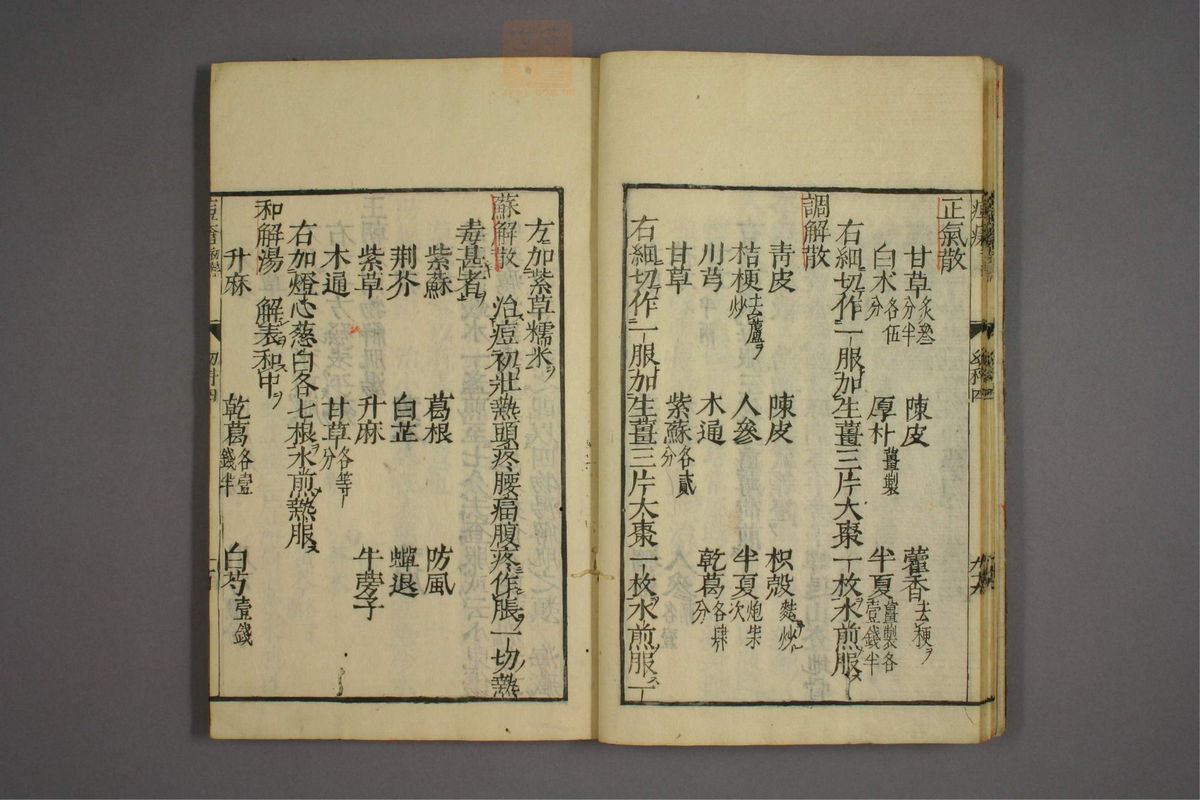 正氣散
甘草炙叁分半 陳皮 藿香去梗ヲ
白朮各伍分 厚朴薑製 半夏薑製各壹錢半
右細切作一服加生薑三片大棗一枚水煎服
調解散
青皮 陳皮 枳殼麩炒
桔梗去蘆ヲ炒 人參 半夏炮柒次
川芎 木通 乾葛各肆分
甘草 紫蘇各貳分
右細切作一服加生薑三片大棗一枚水煎服一
方加紫草糯米ヲ
蘇解散 治痘初壯熱頭疼腰痛腹疼作脹一切熱
毒甚者ヲ
紫蘇 葛根 防風
荆芥 白芷 蟬退
紫草 升麻 牛蒡子
木通 甘草各等分
右加燈心葱白各七根水煎熱服
和解湯 解表和中ヲ
升麻 乾葛各壹錢半 白芍壹錢